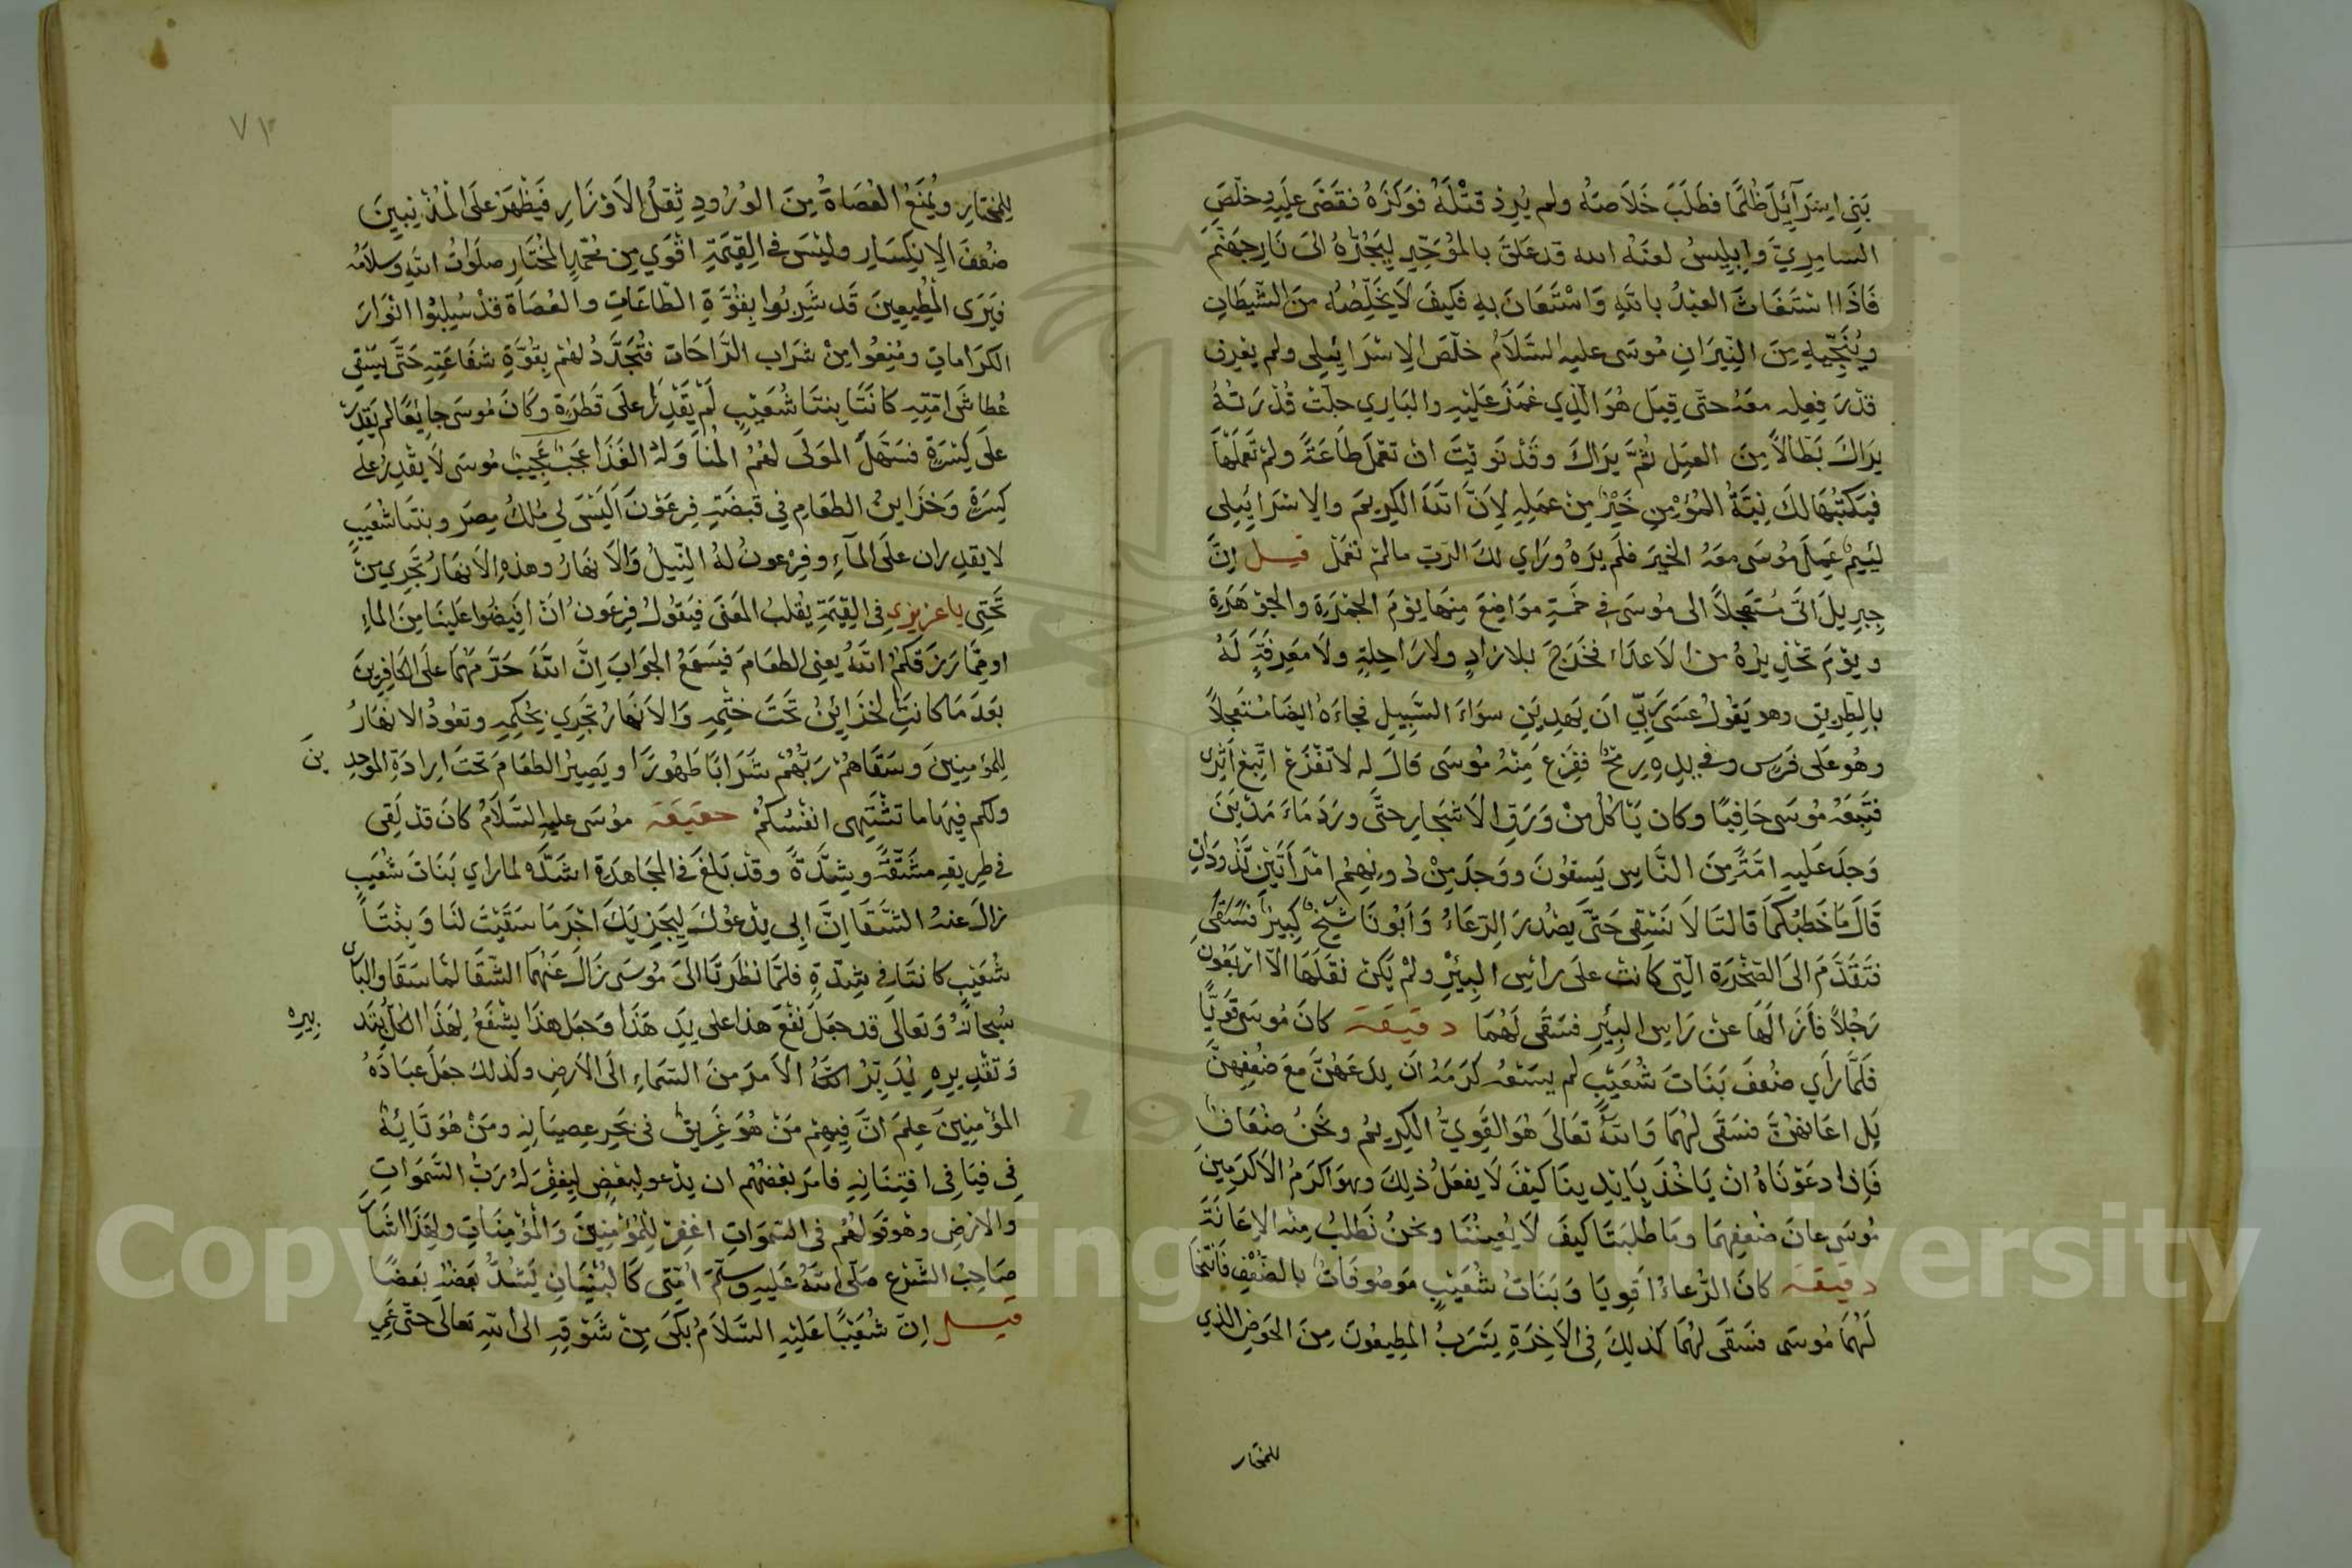 بَنِي اسرَآئيلَ ظُلمًا فطَلَبَ خَلَاصَهُ ولم يُرِد قتْلَهُ فوَكَزَهُ فقَضَى عَلَيهِ خلّصَ
السامِرِيَّ وابِليسُ لعنَهُ الله قد عَلقَ بالمُوَحِّدِ ليَجُرّهُ الىَ نَارِ جهَنّمَ
فَاذَا استَغاثَ العَبْدُ باللهِ وَاسْتعَانَ بهِ فكيفَ لَا يُخَلِّصُهُ منَ الشّيطَانِ
ويُنَجِّيهِ مِنَ النِيرَانِ مُوسَى عليه السَّلَامُ خلّصَ الاِسْرَايئلِى ولم يعْرِف
قدْرَ فِعلِه معَهُ حتى قيلَ هُوَ الّذِي غمَزَ عَليْهِ والبَارِي جلّتْ قُدْرَتُهُ
يرَاكَ بَطّالاً مِنَ العمَلِ ثمَّ يرَاكَ وقَدْ نَويْتَ انْ تعْمَلَ طَاعَةً ولمْ تعْمَلْهَا
فيَكتُبُهَا لكَ نِيّةُ المُؤْمِنِ خَيْرٌ مِنْ عمَلِهِ لِاَنَّ اللهَ الكَرِيمَ والاِسْرَايئلِى
لَئِيمٌ عَمِلَ مُوسَى معَهُ الخيرَ فلَم يرَهُ ورَاي لكَ الرّبّ مالمْ تعْمَلْ قيل اِنّ
جِبرِيلَ اتَى مُستَعجِلاً الى مُوسَى فِي خَمسَةِ موَاضِعَ مِنهَا يوْمَ الجَمْرَةِ والجَوْهَرَةِ
ويوْمَ تحْذِيرِهُ من الاَعدَاء فخَرَجَ بلا زادٍ ولارَاحِلةٍ ولَا معَرِفَةٍ لَهُ
بالطّريقِ وهو يَقُولُ عسَى رَبّي اَن يَهدِيَنِي سوَاءَ السَّبِيلِ فجاءَهُ ايضًا مُستعجِلاً
وهُو عَلى فرَسٍ وفي يدِهِ رِمحٌ ففَزِعَ مِنْهُ مُوسَى قَالَ له لَا تفْزَعْ اتَّبِعْ اثَرِى
فتَبِعَهُ مُوسَى حَافِيًا وكانَ يَاكُلُ مِنْ وَرَقِ الاَشجَارِ حتَّى ورَدَ مَاءَ مَدْيَنَ
وَجدَ عَليهِ امّةً مِنَ النَّاسِ يَسقُونَ ووَجدَ مِنْ دُونِهِمُ امْرَأتَيْنِ تَذُودَانِ
قَالَ مَا خَطبُكُمَا قالَتا لَا نَسْقِى حَتَّى يصْدُرَ الرِّعَاءُ وَابُونَا شيْخٌ كبِيرٌ فسَقَى
فتَقَدّمَ الىَ الصّخْرَةِ الّتِى كانتْ على رَاسِ البِيْرِ ولمْ يكنْ نقلَهَا الاّ اربَعُونَ
رَجُلاً فأزَالَهَا عنْ رَاسِ البِيْرِ فسَقَى لَهُمَا دقيقة كانَ مُوسَى قوِيًّا
فلَمَّا رأَي ضُعفَ بَنَاتِ شُعَيْبٍ لم يسَعْه كرَمهُ اَن يدَعَهُنَّ معَ ضُعفِهِنّ
بَل اعَانهُنّ فسَقَى لهُمَا وَاللهُ تعَالَى هُوَ القَوِيُّ الكَرِيمُ ونَحْنُ ضُعَافٌ
فَاِذا دعَوْنَاهُ انْ يَاخُذَ بِايْدِينَا كيْفَ لَا يفعَلُ ذلِكَ وهوَ اكرَمُ الاَكرَمِينَ
مُوسَى عانَ ضُعفهِمَا ومَا طلبَتَا كيفَ لَا يُعِينُنَا ونحنُ نَطلبُ مِنه الاِعَانَةَ
دقيقة كانَ الرّعاءُ اقوِيَا وَبنَاتُ شُعَيْبٍ مَوصُوفَاتٌ بالضُّعْفِ
لَهُمَا مُوسَى فسَقَى لهُمَا كذلِكَ في الاَخِرَةِ يَشرَبُ المُطِيعُونَ مِنَ الحَوضِ الذي
للمختار
٧١
لِلمُختارِ ويُمنَعُ العُصَاةُ مِنَ الوُرُودِ ثِقلُ الاَوْزَارِ فيَظْهَرُ عَلَى المُذنِبِينَ
ضُعفَ الاِنكِسَارِ وليْسَ فِي القِيمَةِ اقوَي مِن مُحَمّدٍ المُختَارِ صلَوَاتُ اللهِ وسلَامُه
فيَرَى المُطِيعِينَ قَد شَرِبُوا بِقُوَّةِ الطّاعَاتِ والعُصَاةَ قدْ سُلِبُوا انْوَارَ
الكرَاماتِ ومُنِعُوا مِنْ شرَاب الرَّاحَات فتُجَدَّدُ لهُمْ بقُوّةِ شفَاعَتِهِ حَتَّى يسْقِي
عُطاشَى امّتِهِ كانَتَا بِنتَا شُعَيْبٍ لَمْ يَقْدِرَا علَى قطرَةٍ وكَانَ مُوسَى جايِعًا لم يَقدِرْ
علَى كِسْرَةٍ فسَهّلَ الموَلَى لهُمُ المَا وَلهُ الغَذَا عجَبٌ عجِيبٌ مُوسَى لَا يقْدِرُ على
كِسرَةٍ وَخزَاينُ الطعَامِ فِي قبضَةِ فِرعَوْنَ اَليَسَ لِي مُلكُ مِصرَ وبنتَا شعَيبٍ
لا يقدِران علَى المَآءِ وفِرْعونُ لهُ النِّيلُ وَالَانهَارُ وهذهِ الاَنهَارُ تجَرِي مِنْ
تَحتِى ياعزيزي فِي القِيمَةِ يُقلَبُ المَعَنَى فيَقُولُ فِرعَونُ انْ افِيضُوا عَليْنَا مِنَ الماءِ
اوممَّا رَزَقكمُ اللهُ يعنِى الطعَامَ فيَسمَعُ الجوَابَ اِنَّ اللهَ حَرّمَهُمَا علَى الكَافِرِينَ
بعَدَ مَا كانتِ الخزَايِنُ تَحتَ ختْمِهِ وَالاَنهَارُ تجرِي بحُكمِهِ وتعُودُ الانهَارُ
لِلمُؤمِنِينَ وسَقَاهُمْ رَبّهُمْ شرَابًا طهُورًا ويَصِيرُ الطعَام تحتَ ارادَةِ الموَحدِ ينَ
ولكم فِيهَا ما تشْتَهِى انفُسُكُمْ حقيقة مُوسَى عليهِ السَّلَامُ كانَ قدْ لَقِى
في طرِيقهِ مشَقّةً وشِدَّةً وقدْ بَلغَ في المجَاهدَةِ اشدَّهُ لماراي بَنَاتَ شعَيبٍ
زالَ عنهُ الشّقَا اِنَّ ابِى يدْعُوكَ ليَجزِيَكَ اجْرَ مَا سَقَيْتَ لنَا وَبِنْتَا
شُعَيْبٍ كانتَا فِي شِدّةٍ فلمّا نظَرتَا الىَ مُوسَى زَالَ عَنهُمَا الشّقَا لمّا سقَا والبَارى
سُبحانَهُ وَتعَالَى قد جعَلَ نفْعَ هذا على يدِ هَذَا وَجعَل هذَا يشْفَعُ لِهَذَا الكلُّ بتَد بيره
وَتقْدِيرِهِ يُدَبِّرُ اللهُ الاَمرَ مِنَ السّمَاءِ الَى الاَرضِ وكذلك جعَلَ عبَادَهُ
المؤمِنِينَ عَلِمَ انّ فِيهِمْ مَنْ هُوَ غَرِيقٌ فى بَحرِ عِصيَانِهِ ومَنْ هُوَ تَايِهٌ
فِى فيَافِى افتِنَانِهِ فامَرَ بعْضَهُم ان يدْعو لِبَعْضٍ ليَغفِرَ لهُ رَبُّ السّمَوَاتِ
والاَرْضِ وهْو قَولهُم فى السّمَوَاتِ اغفِرْ لِلمُؤمِنِينَ وَالمُؤمِنَاتِ ولِهَذَا اشَارَ
صَاحِبُ الشّرْعِ صَلّى اللهُ عَليهِ وسلّمَ امّتى كَالبُنْيَانِ يَشُدُّ بَعضُهُ بعَضًا
قيل اِنّ شُعَيْبًا عَليْهِ السَّلَامُ بكَى مِنْ شَوْقِهِ الى اللهِ تعَالَى حتّى عَمِي
Copyright © King Saud University